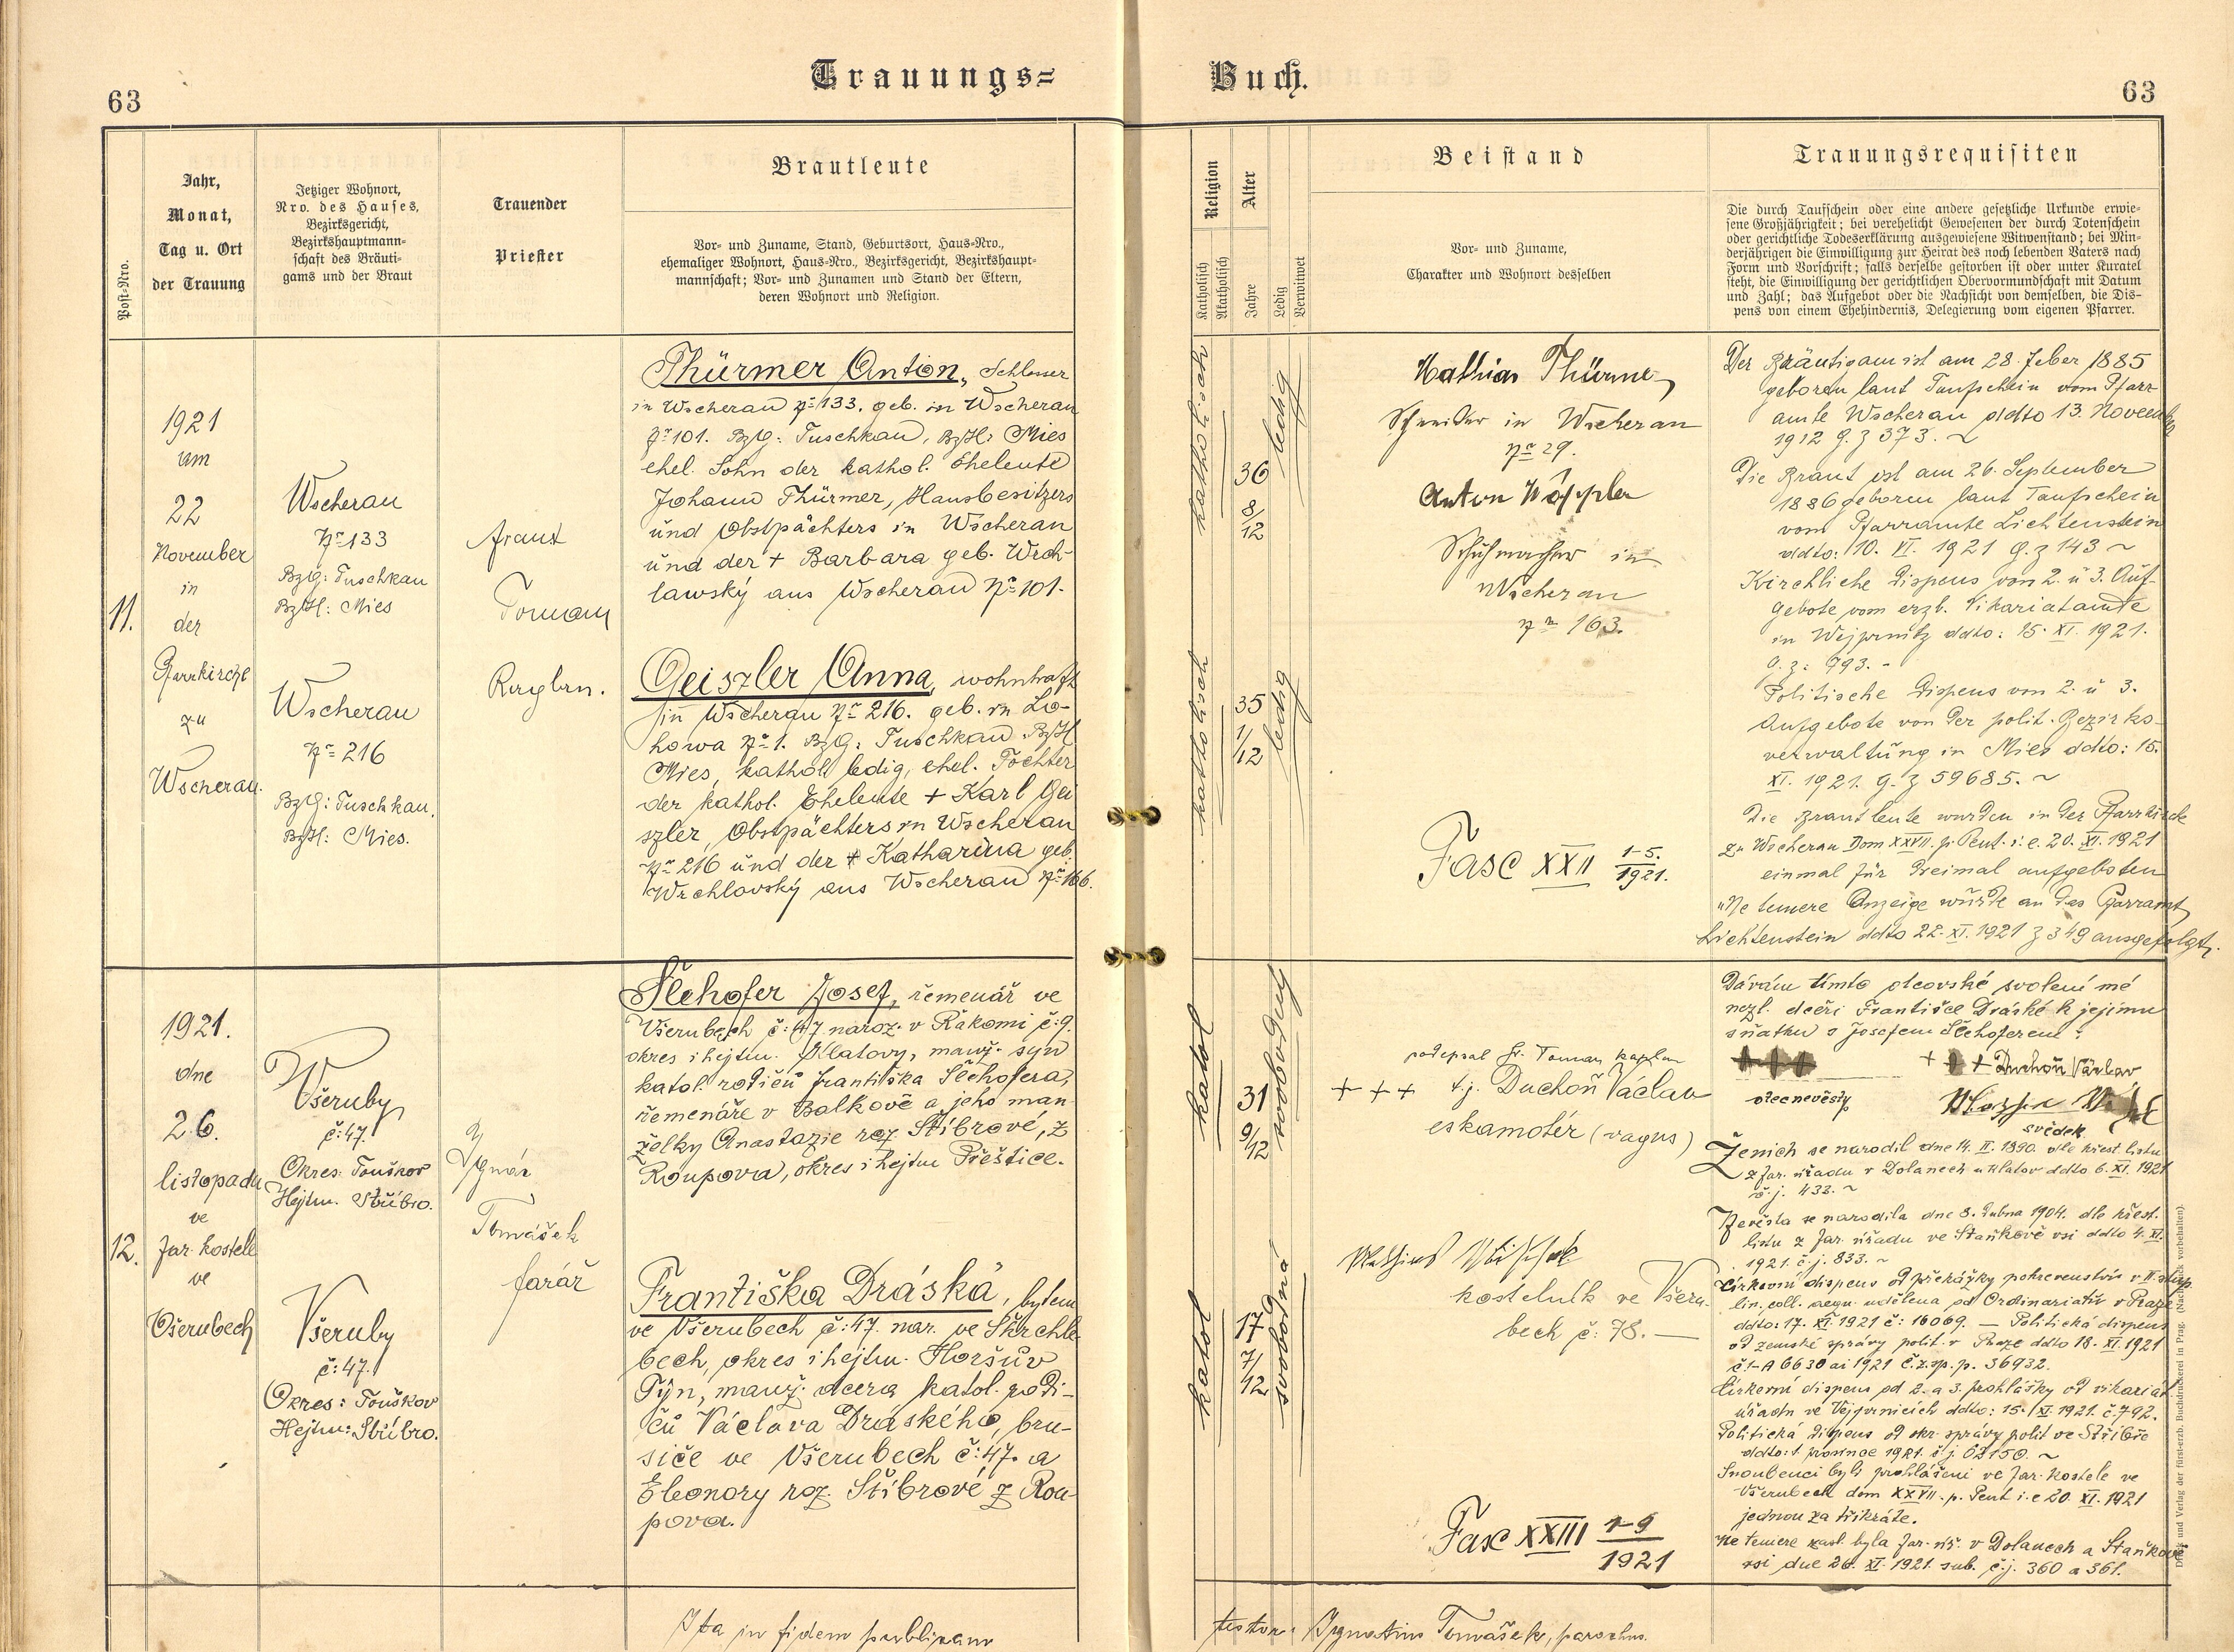 63
Trauungs=
Post=Nro.
Jahr,
Monat,
Tag u. Ort
der Trauung
Jetziger Wohnort,
Nro. des Hauses,
Bezirksgericht,
Bezirkshauptmann=
schaft des Bräuti=
gams und der Braut
Trauender
Priester
Brautleute
Vor= und Zuname, Stand, Geburtsort, Haus=Nro.,
ehemaliger Wohnort, Haus=Nro., Bezirksgericht, Bezirkshaupt=
mannschaft; Vor= und Zunamen und Stand der Eltern,
deren Wohnort und Religion.
11.
1921
am
22
November
in
der
Pfarrkirche
zu
Wscherau.
Wscherau
No 133
BzG: Tuschkau
BzH: Mies
Wscherau
No 216
BzG: Tuschkau.
BzH: Mies.
Franz
Toman
Kaplan.
Thürmer Anton, Schlosser
in Wscherau No 133. geb. in Wscherau
No 101. BzG: Tuschkau, BzH: Mies
ehel. Sohn der kathol. Eheleute
Johann Thürmer, Hausbesitzers
und Obstpächters in Wscherau
und der + Barbara geb. Wrch-
lawský aus Wscherau No 101.
Geiszler Anna, wohnhaft
in Wscherau No 216. geb. in Lo-
howa No 1. BzG: Tuschkau. BzH
Mies, kathol. ledig, ehel. Tochter
der kathol. Eheleute + Karl Gei
szler, Obstpächters in Wscherau
No 216 und der + Katharina geb.
Wrchlovský aus Wscherau No 166.
12.
1921.
dne
26.
listopadu
ve
far. kostele
ve
Všerubech
Všeruby
č:47.
Okres: Touškov
Hejtm. Stříbro.
Všeruby
č:47.
Okres: Touškov
Hejtm: Stříbro.
Ignác
Tomášek
farář
Šlehofer Josef, řemenář ve
Všerubech č:47 naroz. v Řakomi č:9.
okres i hejtm. Klatovy, manž. syn
katol. rodičů Františka Šlehofera,
řemenáře v Bolkově a jeho man-
želky Anastazie roz. Stíbrové, z
Roupova, okres i hejtm Přeštice.
Františka Dráská, bytem
ve Všerubech č:47. nar. ve Škrchle
bech, okres i hejtm. Horšův
Týn, manž. dcera katol. rodi-
čů Václava Dráského, bru-
siče ve Všerubech č:47. a
Eleonory roz. Stíbrové z Rou-
pova.
Ita in fidem publicam
Buch.
63
Religion
Katholisch
Akatholisch
Alter
Jahre
Ledig
Verwitwet
Beistand
Vor= und Zuname,
Charakter und Wohnort desselben
Trauungsrequisiten
Die durch Taufschein oder eine andere gesetzliche Urkunde erwie=
sene Großjährigkeit; bei verehelicht Gewesenen der durch Totenschein
oder gerichtliche Todeserklärung ausgewiesene Witwenstand; bei Min=
derjährigen die Einwilligung zur Heirat des noch lebenden Vaters nach
Form und Vorschrift; falls derselbe gestorben ist oder unter Kuratel
steht, die Einwilligung der gerichtlichen Obervormundschaft mit Datum
und Zahl; das Aufgebot oder die Nachsicht von demselben, die Dis=
pens von einem Ehehindernis, Delegierung vom eigenen Pfarrer.
katholisch
36
8/12
ledig
katholisch
35
1/12
ledig
Mathias Thürmer
Schneider in Wscherau
No 29.
Anton Wöppler
Schuhmacher in
Wscherau
No 163.
Fasc XXII 1-5./1921.
Der Bräutigam ist am 28. Feber 1885
geboren laut Taufschein vom Pfarr-
amte Wscherau ddto 13. November
1912 G. Z 373. ~
Die Braut ist am 26. September
1886 geboren laut Taufschein
vom Pfarramte Lichtenstein
ddto: 10. VI. 1921 G. z 143 ~
Kirchliche Dispens von 2. u 3. Auf-
gebote vom erzb. Vikariatamte
in Wejprnitz ddto: 15. XI. 1921.
G. z: 793. -
Politische Dispens von 2. u 3.
Aufgebote von der polit. Bezirks-
verwaltung in Mies ddto: 15.
XI. 1921. G. Z 59685. ~
Die Brautleute wurden in der Pfarrkirche
zu Wscherau Dom XXVII. p. Pent. i. e. 20. XI. 1921
einmal für dreimal aufgeboten
"Ne temere Anzeige würde an das Pfarramt
Lichtenstein ddto 22. XI. 1921 z 349 ausgefolgt.
katol
31
9/12
svobodný
katol
17
7/12
svobodná
podepsal Fr. Toman kaplan
+ + + t.j. Duchoň Václav
eskamotér (vagus)
kostelník ve Všeru-
bech č: 78. —
Fasc XXIII 1-9/1921
Dávám tímto otcovské svolení mé
nezl. dceři Františce Dráské k jejímu
sňatku s Josefem Šlehoferem:
+ + + Duchoň Václav
otec nevěsty
svědek
Ženich se narodil dne 14. II. 1890. dle křest. listu
z far. úřadu v Dolanech u Klatov ddto 6. XI. 1921
č. j. 433. ~
Nevěsta se narodila dne 8. dubna 1904. dle křest.
listu z far. úřadu ve Staňkově vsi ddto 4. XI.
1921. č. j. 833. ~
Církevní dispens od překážky pokrevenství v II. stup
lin. coll. aequ. udělena od Ordinariátu v Praze
ddto: 17. XI 1921 č: 16069. — Politická dispens
od zemské správy polit. v Praze ddto 18. XI. 1921
č. 1-A 6630 ai 1921 č. z. sp. p. 36932.
Církevní dispens od 2. a 3. prohlášky od vikariát.
úřadu ve Vejprnicích ddto: 15. XI. 1921. č. 792.
Politická dispens od okr. správy polit ve Stříbře
ddto: 1. prosince 1921. č. j. 62150. ~
Snoubenci byli prohlášeni ve far. kostele ve
Všerubech dom XXVII. p. Pent i. e 20. XI. 1921
jednou za třikráte.
Ne temere zasl. byla far. úř. v Dolanech a Staňkově
vsi dne 26. XI. 1921. sub. č. j. 360 a 361.
Druck und Verlag der fürst-erzb. Buchdruckerei in Prag. (Nachdruck vorbehalten).
testor: Ignatius Tomášek, parochus.